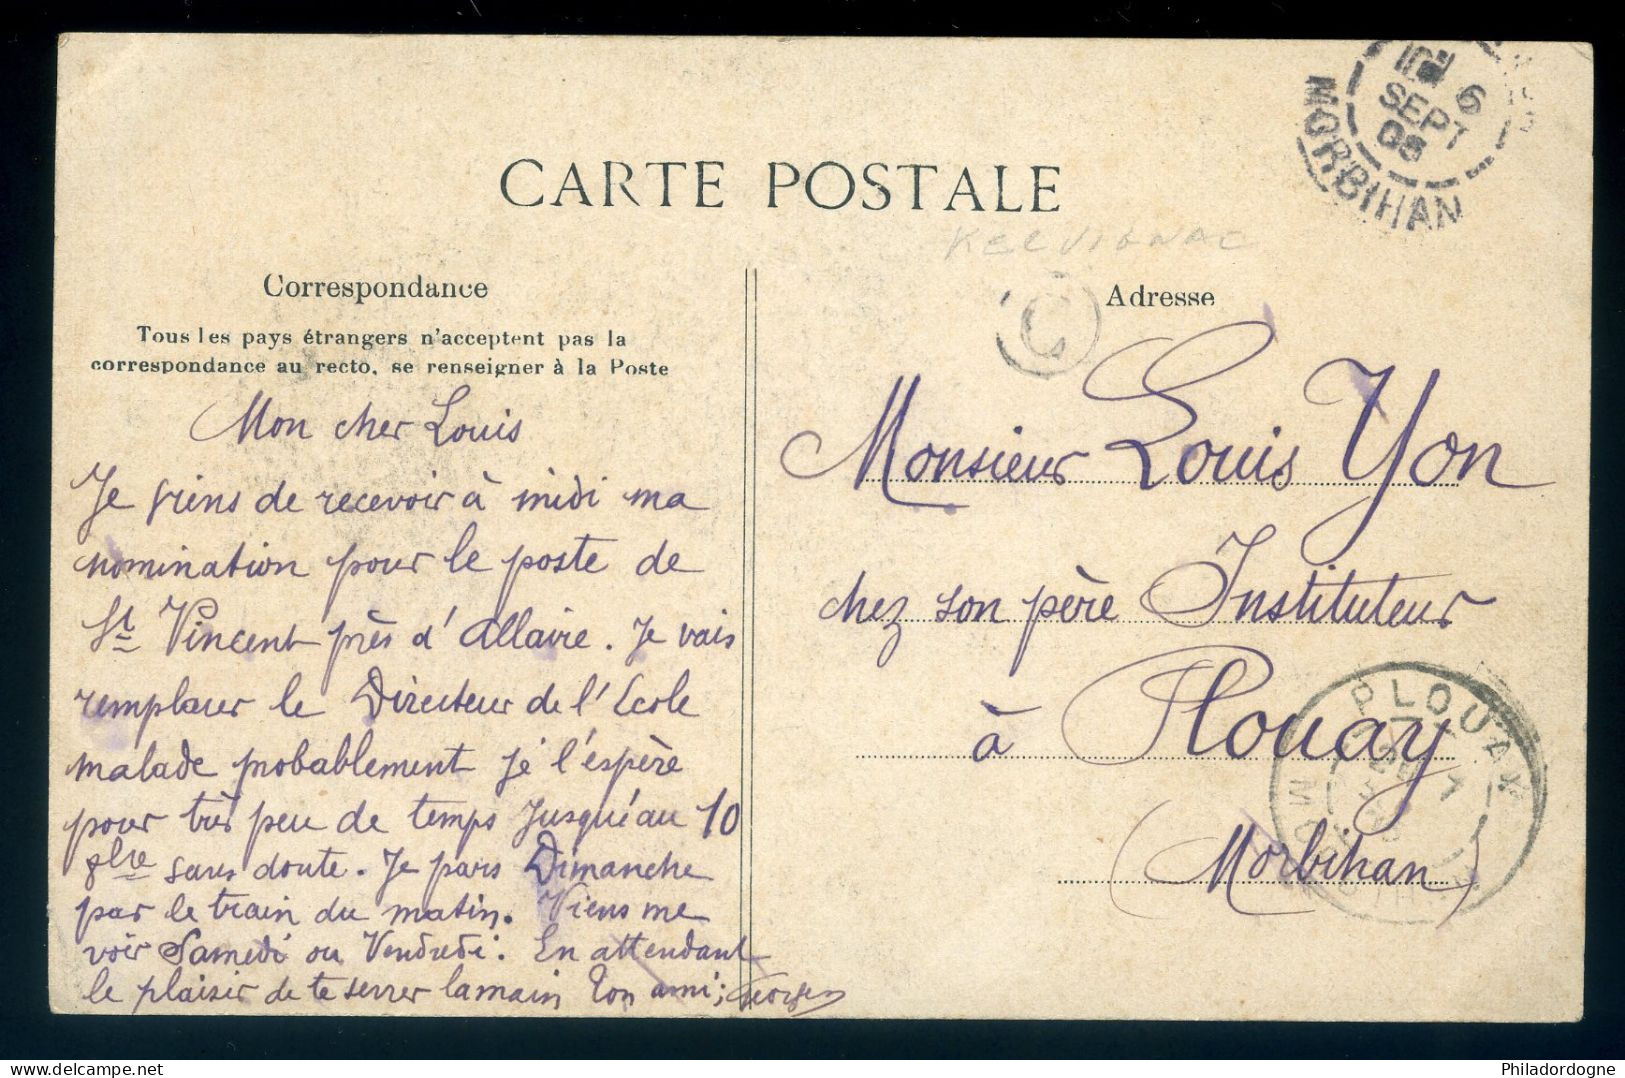 CARTE POSTALE
KERVIGNAC
Correspondance
Tous les pays étrangers n'acceptent pas la
correspondance au recto, se renseigner à la Poste
Mon cher Louis
Je viens de recevoir à midi ma
nomination pour le poste de
St Vincent près d'Allaire. Je vais
remplacer le Directeur de l'Ecole
malade probablement je l'espère
pour très peu de temps jusqu'au 10
8bre sans doute. Je pars Dimanche
par le train du matin. Viens me
voir Samedi ou Vendredi. En attendant
le plaisir de te serrer la main Ton ami; Georges
Adresse
Monsieur Louis Yon
chez son père Instituteur
à Plouay
(Morbihan)
6
SEPT
MORBIHAN
PLOUAY
7
Philadordogne